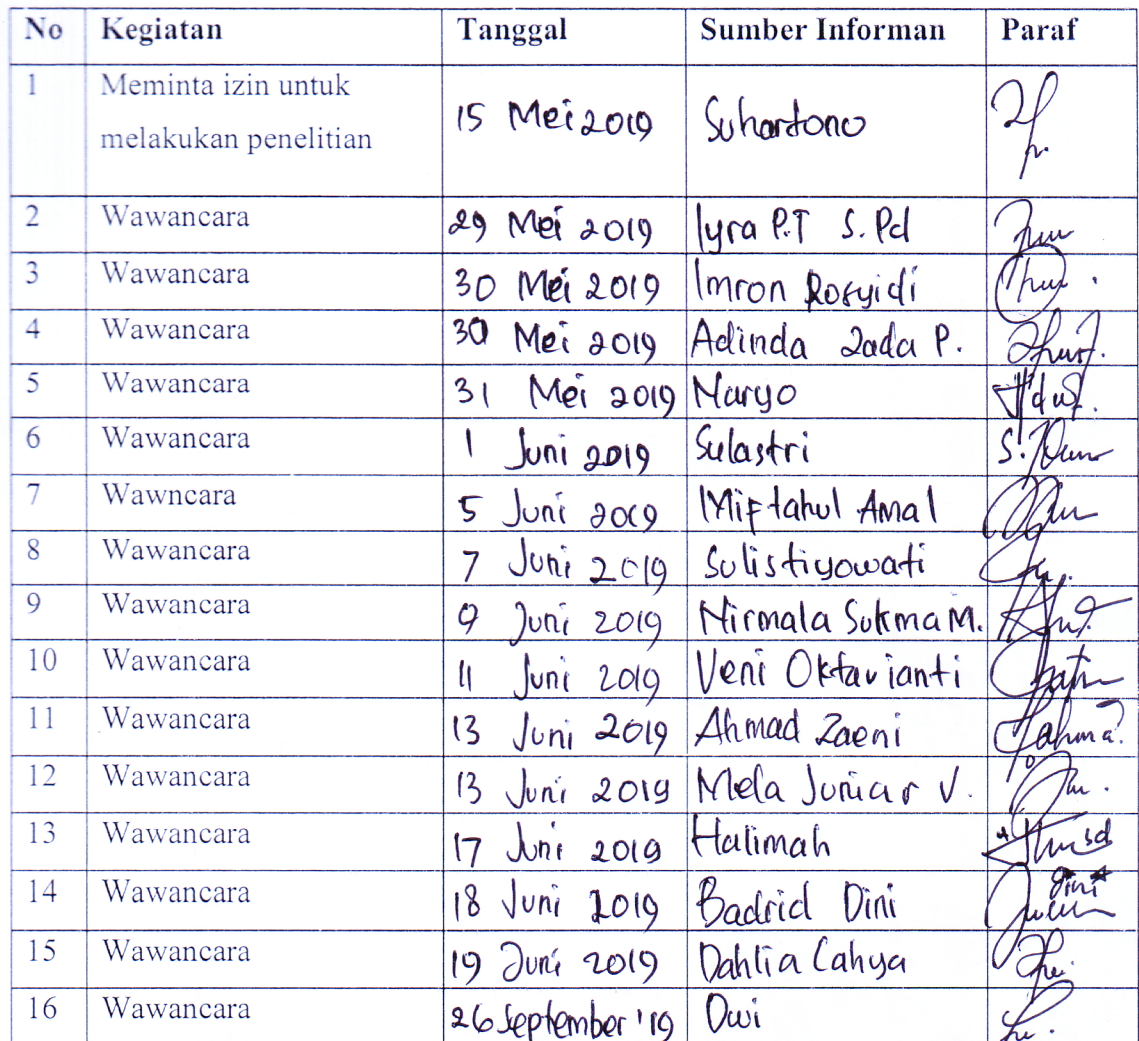 No Kegiatan Tanggal Sumber Informan Paraf
1 Meminta izin untuk
melakukan penelitian 15 Mei 2019 Suhartono
2 Wawancara 29 Mei 2019 Iyra P.T S.Pd
3 Wawancara 30 Mei 2019 Imron Rosyidi
4 Wawancara 30 Mei 2019 Adinda Zada P.
5 Wawancara 31 Mei 2019 Maryo
6 Wawancara 1 Juni 2019 Sulastri
7 Wawncara 5 Juni 2019 Miftahul Amal
8 Wawancara 7 Juni 2019 Sulistiyowati
9 Wawancara 9 Juni 2019 Nirmala Sukma M.
10 Wawancara 11 Juni 2019 Veni Oktavianti
11 Wawancara 13 Juni 2019 Ahmad Zaeni
12 Wawancara 13 Juni 2019 Mela Juniar V.
13 Wawancara 17 Juni 2019 Halimah
14 Wawancara 18 Juni 2019 Badrid Dini
15 Wawancara 19 Juni 2019 Dahlia Cahya
16 Wawancara 26 September '19 Dwi